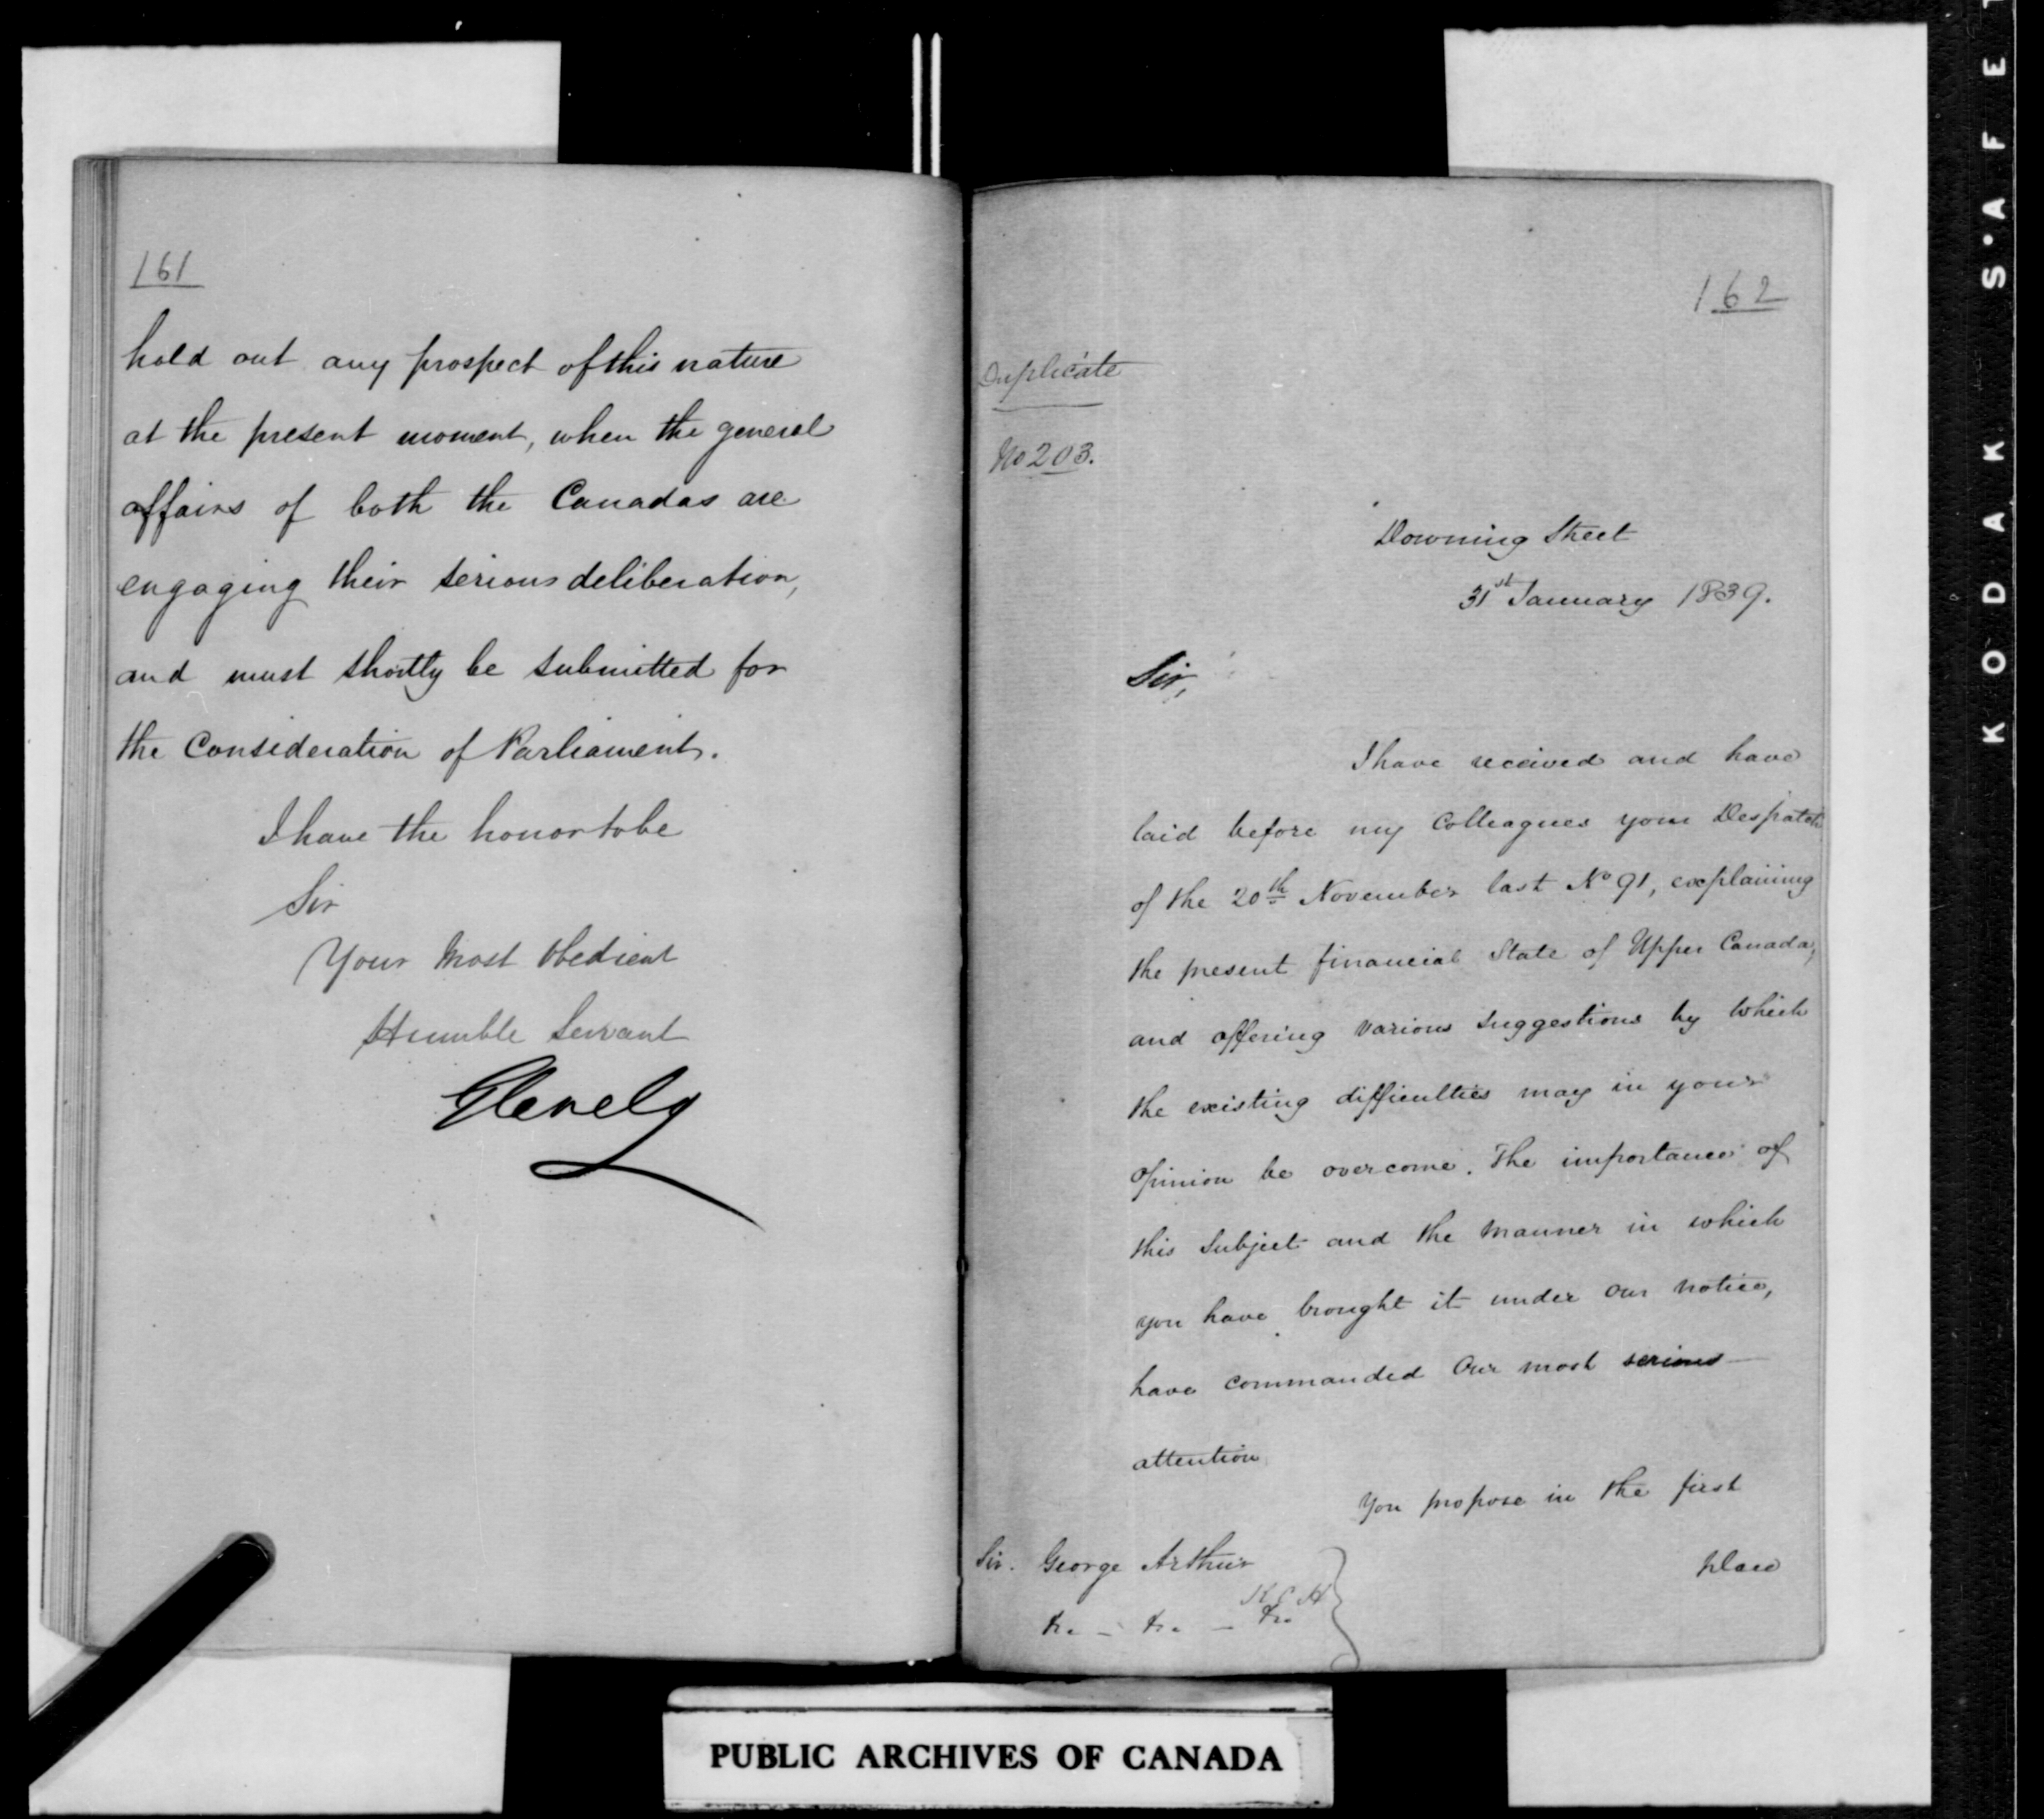 161
hold out any prospect of this nature
at the present moment, when the general
affairs of both the Canadas are
engaging their serious deliberation,
and must shortly be submitted for
the Consideration of Parliament.
I have the honor to be
Sir
Your Most Obedient
Humble Servant
Glenelg
162
Duplicate
No 203.
Downing Street
31st January 1839.
Sir,
I have received and have
laid before my Colleagues your Despatch
of the 20th November last No 91, explaining
the present financial State of Upper Canada,
and offering various suggestions by which
the existing difficulties may in your
opinion be overcome. The importance of
this Subject and the manner in which
you have brought it under our notice,
have commanded Our most serious
attention
You propose in the first
place
Sir. George Arthur
K C H
&c. - &c. - &c.
PUBLIC ARCHIVES OF CANADA
KODAK S·AFE